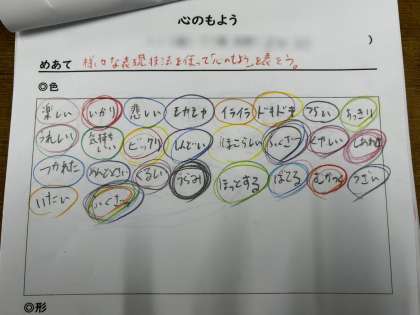 心のもよう
)
めあて 様々な表現技法を使って「心のもよう」を表そう。
◎色
楽しい いかり 悲しい モヤモヤ イライラ ドキドキ つらい すっきり
うれしい 気持ちいい ビックリ しんどい ほこらしい ふくざつ くやしい しあわせ
つかれた めんどくさい くるい うらみ ほっとする ばてる むかつく うざい
いたい ふくざつ
◎形